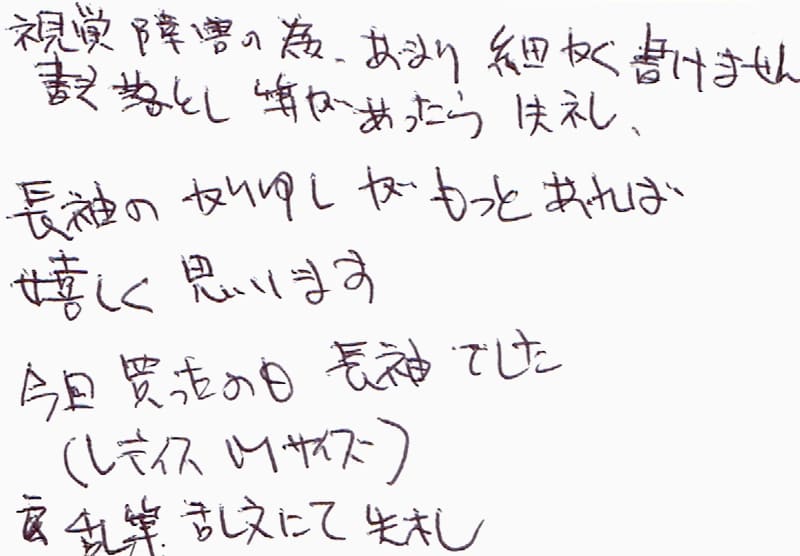 視覚障害の為、あまり細かく書けません
書き落とし等があったら失礼、
長袖のかりゆしがもっとあれば
嬉しく思います
今回買ったの日長袖でした
(レディス Mサイズ)
乱筆乱文にて失礼